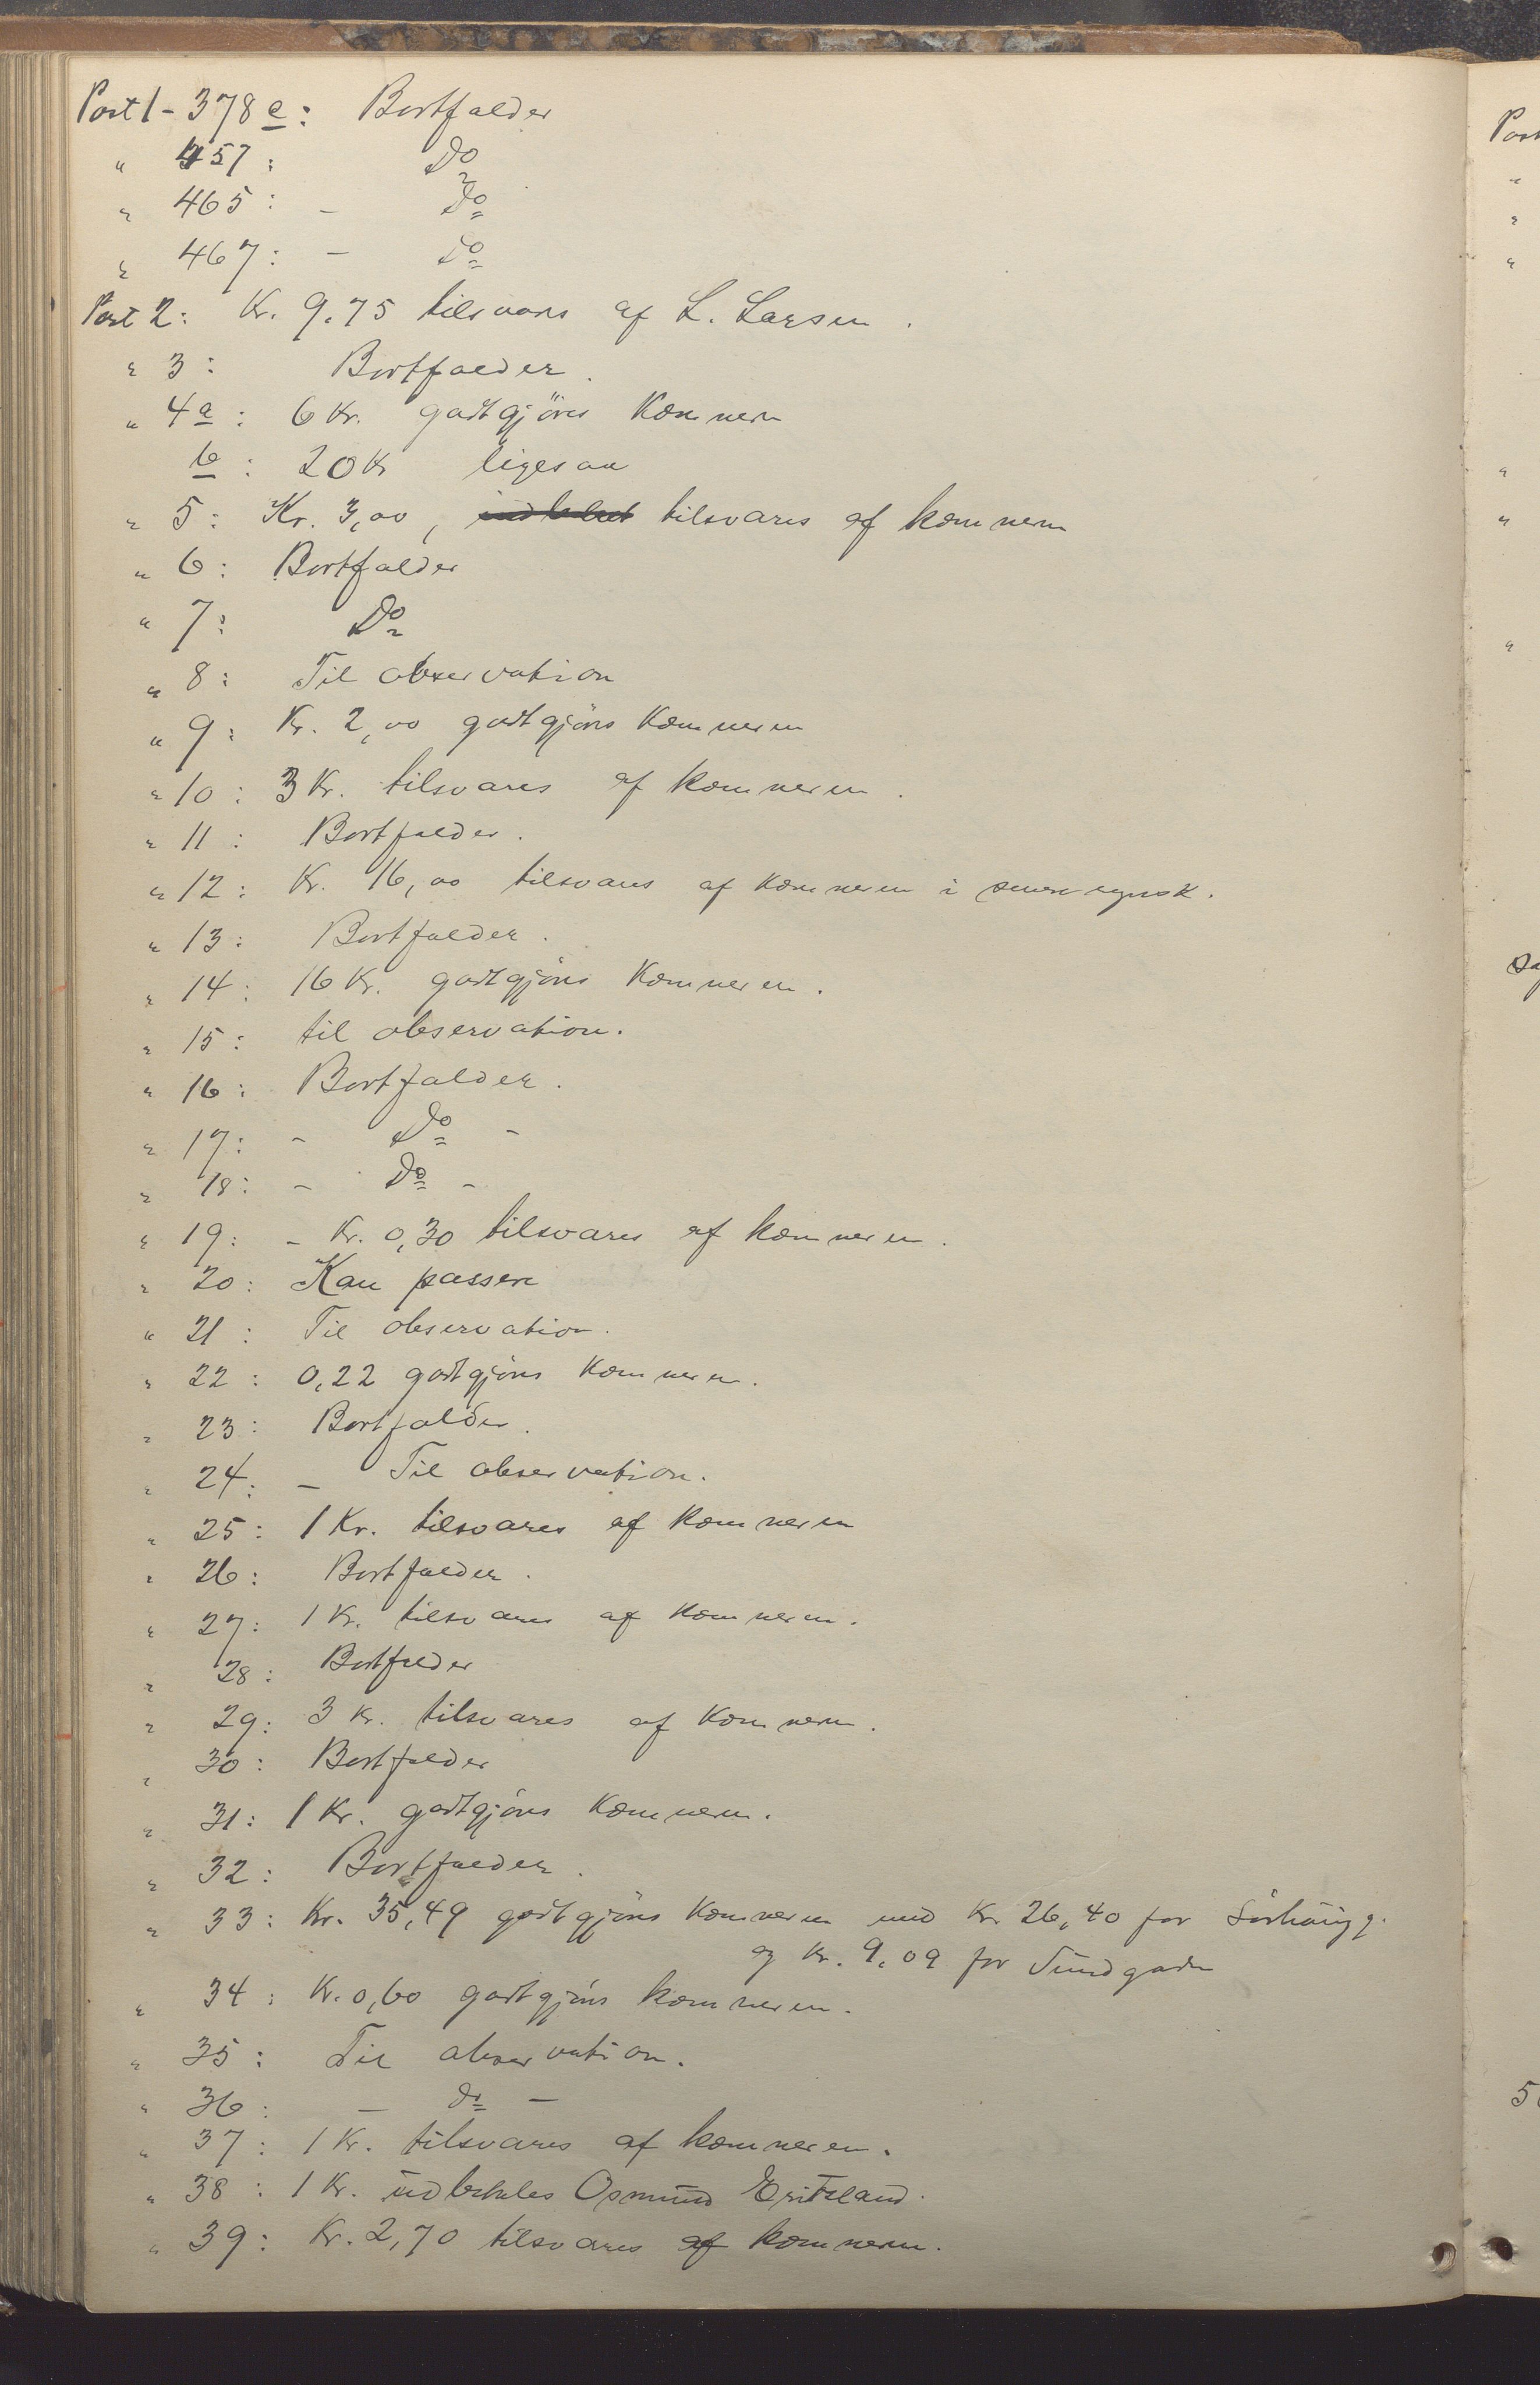 Post 1 - 378 e: Bortfalder
" 457: Do
" 465: - Do
" 467: - Do
Post 2: Kr. 9.75 tilsvares af L. Larsen.
" 3: Bortfalder.
" 4a: 6 Kr. godtgjöres Kæmneren
b: 20 Kr ligesaa
" 5: Kr. 3,00, tilsvares af kæmneren
" 6: Bortfalder
" 7: Do
" 8: Til observation
" 9: Kr. 2,00 godtgjöres Kæmneren
" 10: 3 Kr. tilsvares af kæmneren.
" 11: Bortfalder.
" 12: Kr. 16,00 tilsvares af kæmneren i senere regnsk.
" 13: Bortfalder.
" 14: 16 Kr. godtgjöres Kæmneren.
" 15: til observation.
" 16: Bortfalder.
" 17: - Do -
" 18: - Do -
" 19: - Kr. 0,30 tilsvares af kæmneren.
" 20: Kan passere
" 21: Til observation.
" 22: 0,22 godtgjöres Kæmneren.
" 23: Bortfalder.
" 24: - Til observation.
" 25: 1 Kr. tilsvares af Kæmneren
" 26: Bortfalder.
" 27: 1 Kr. tilsvares af Kæmneren.
" 28: Bortfalder
" 29: 3 Kr. tilsvares af Kæmneren.
" 30: Bortfalder
" 31: 1 Kr. godtgjöres Kæmneren.
" 32: Bortfalder.
" 33: Kr. 35,49 godtgjöres Kæmneren med Kr. 26,40 for
og Kr. 9,09 for Sundgaden
" 34: Kr. 0,60 godtgjöres kæmneren.
" 35: Til observation.
" 36: - do -
" 37: 1 Kr. tilsvares af kæmneren.
" 38: 1 Kr. udbetales Osmund
" 39: Kr. 2,70 tilsvares af kæmneren.